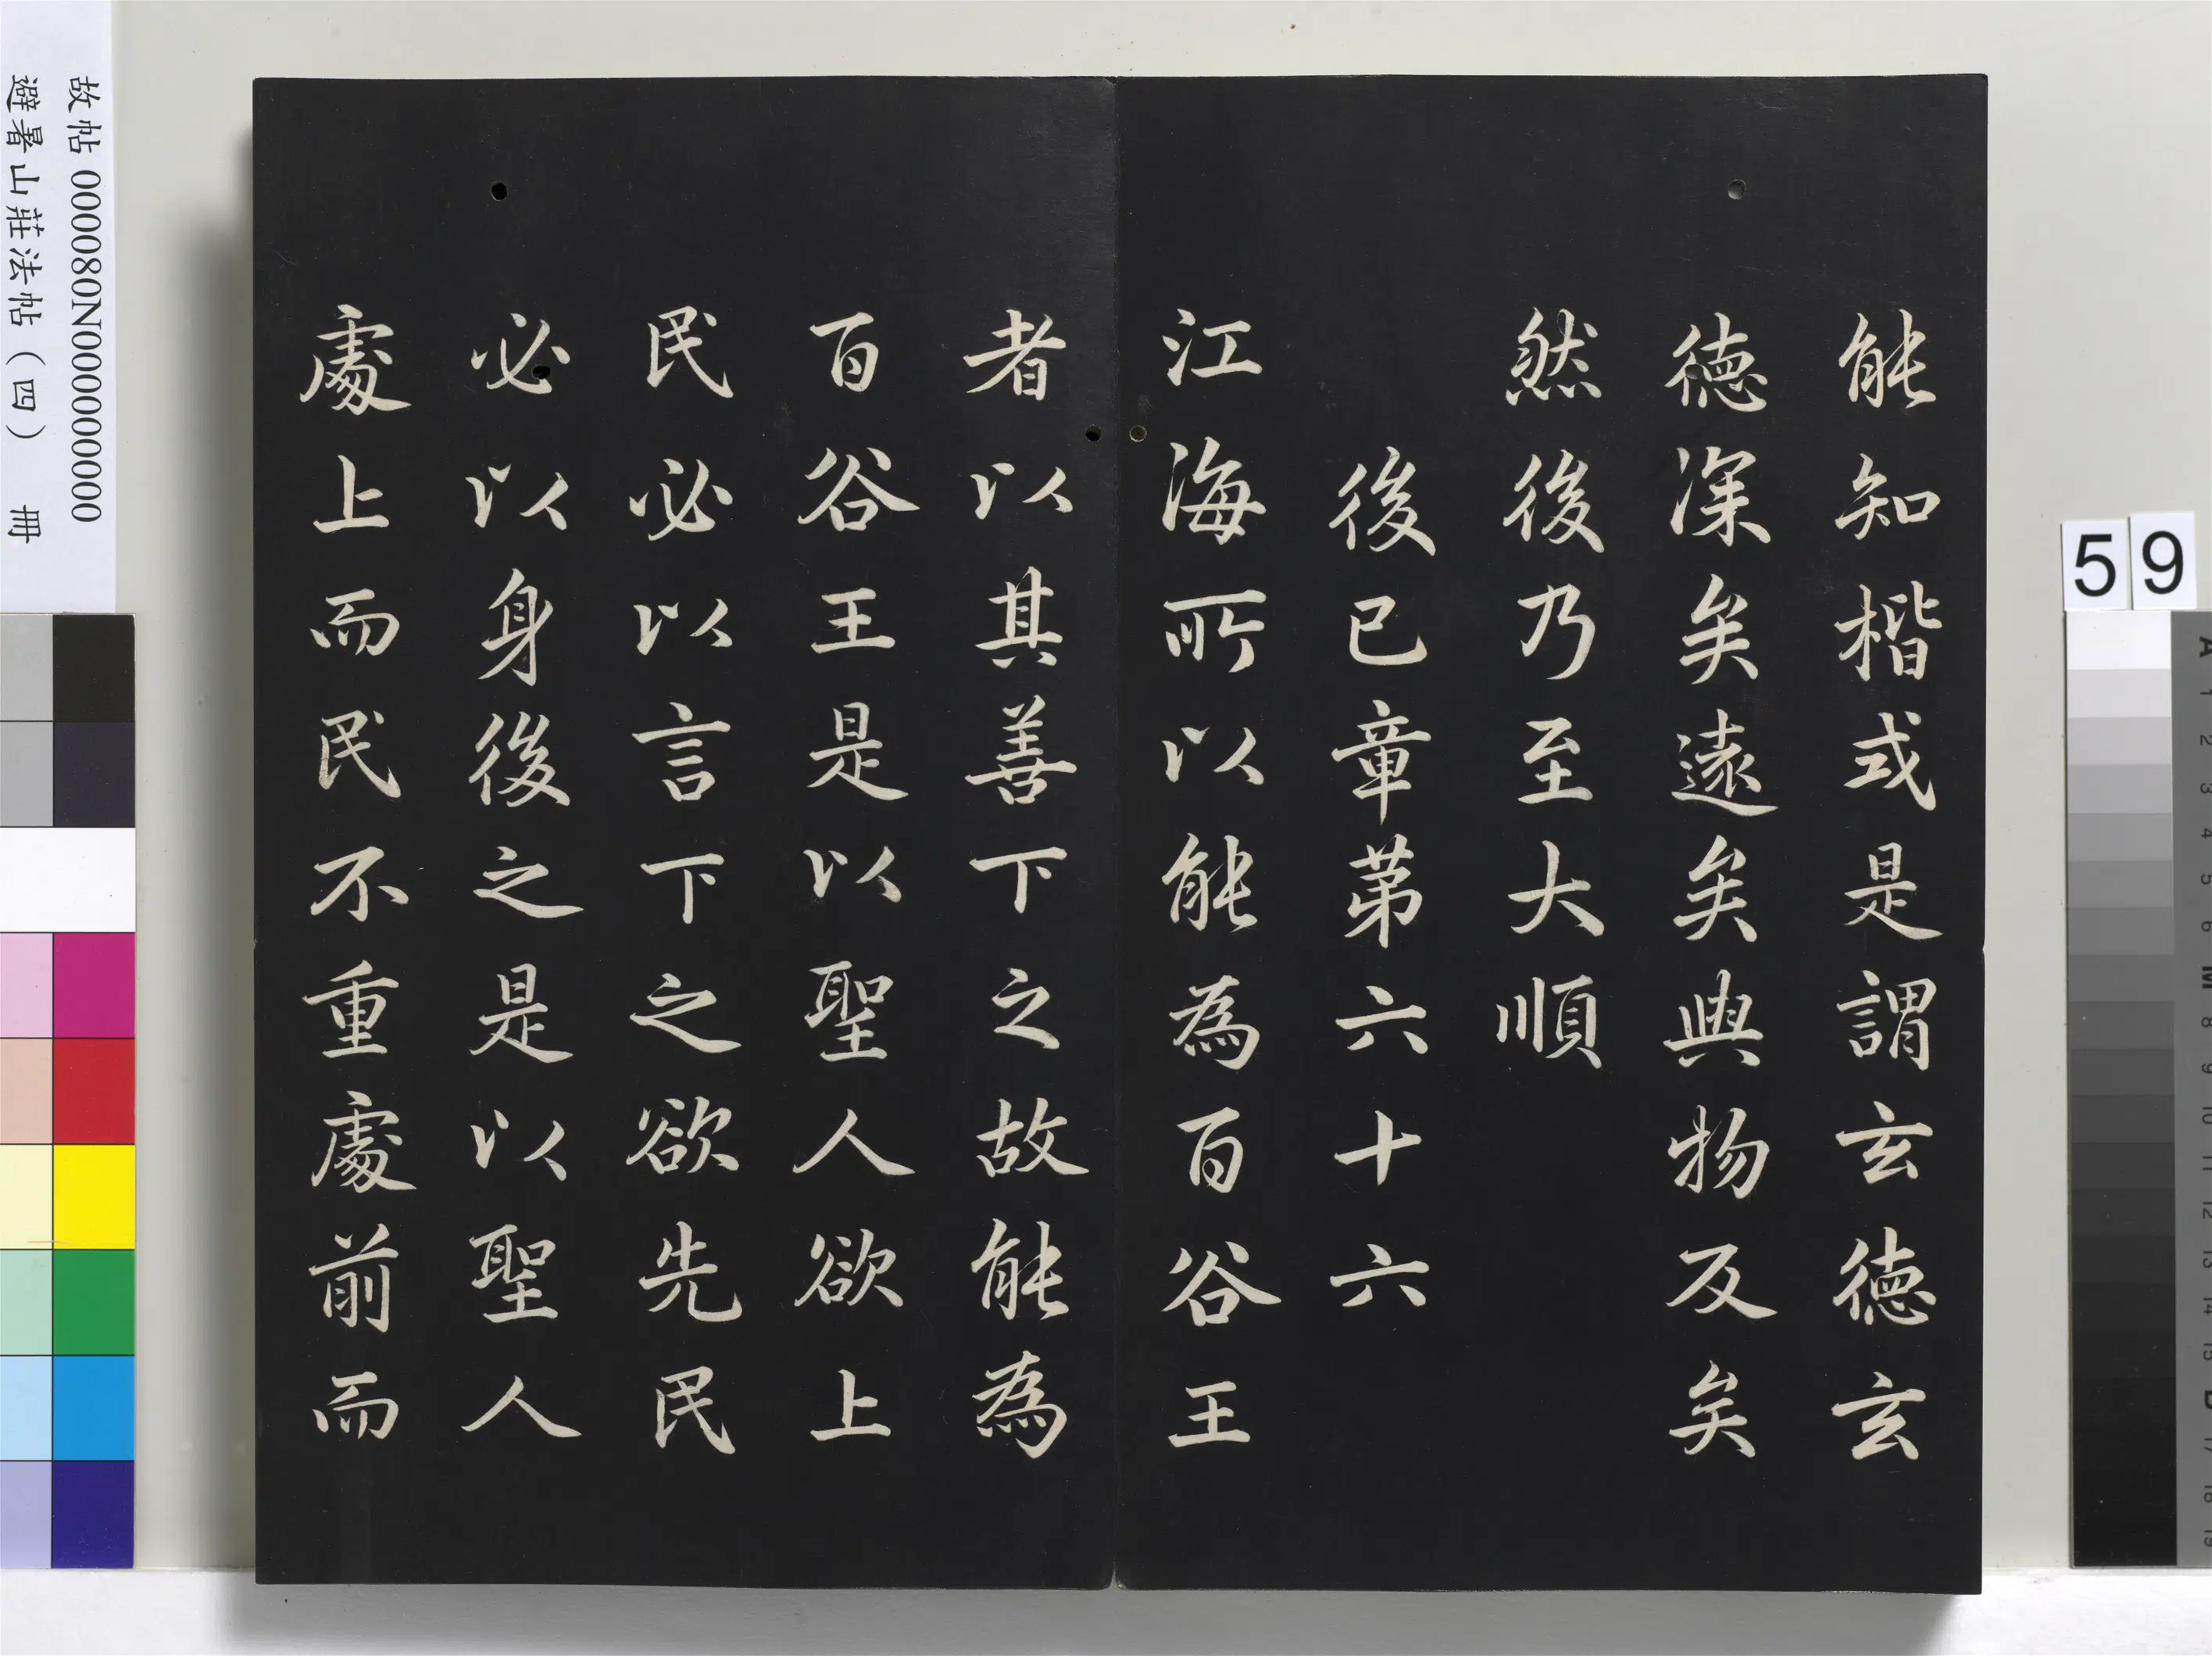 能知楷式是謂玄德玄
德深矣遠矣與物反矣
然後乃至大順
後已章第六十六
江海所以能為百谷王
者以其善下之故能為
百谷王是以聖人欲上
民必以言下之欲先民
必以身後之是以聖人
處上而民不重處前而
故帖 000080N000000000
避暑山莊法帖（四） 冊
59
A 1 2 3 4 5 6 M 8 9 10 11 12 13 14 15 B 17 18 19